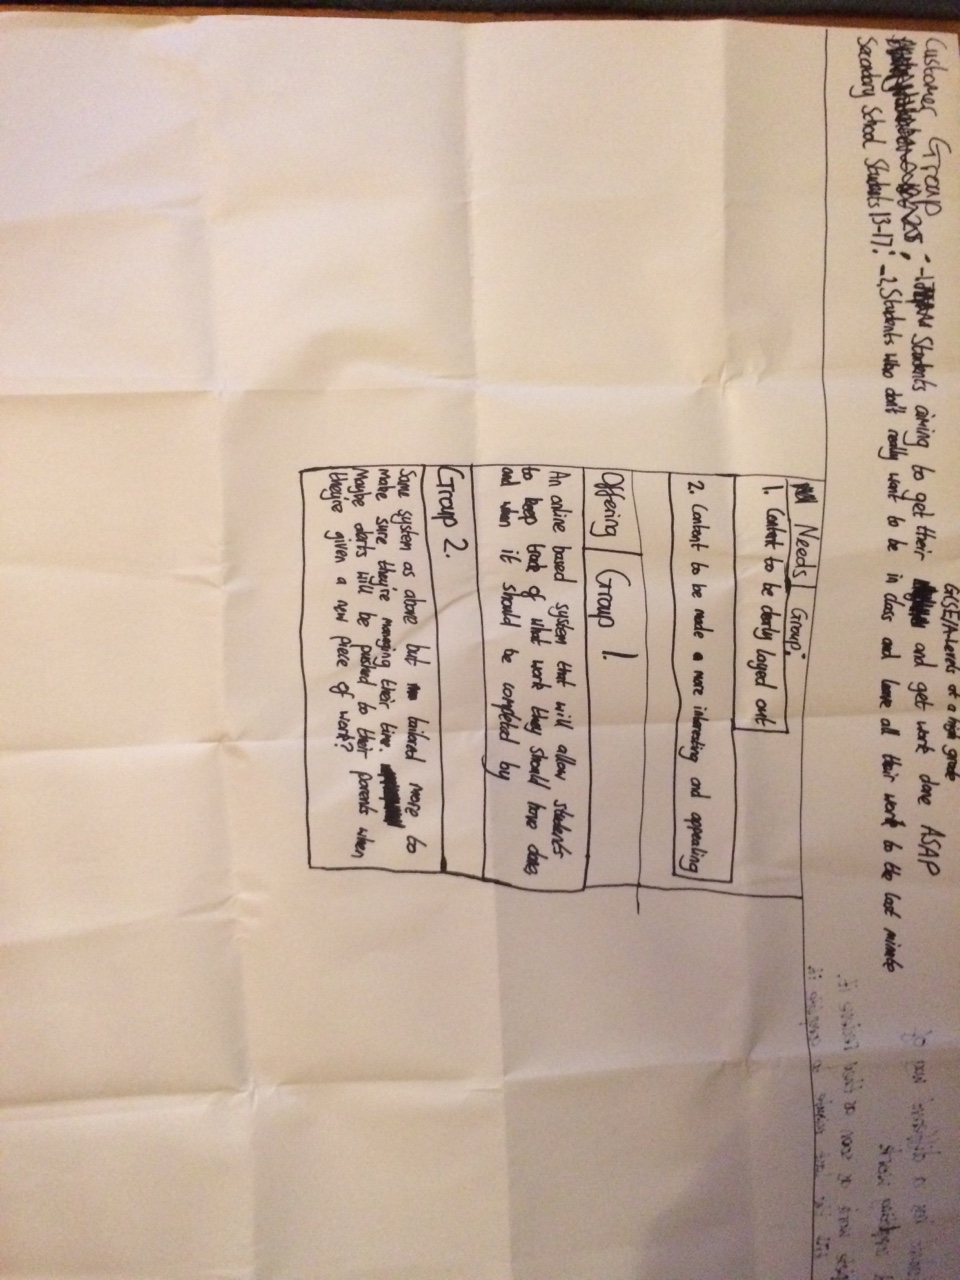 GCSE/A-Levels at a high grade
Customer Group
:-1. Students aiming to get their and get work done ASAP
Secondary School Students 13-17: -2, Students who don't really want to be in class and leave all their work to the last minute
Needs Group:
1. Content to be clearly layed out
2. Content to be made a more interesting and appealing
Offering Group 1.
An online based system that will allow students
to keep track of what work they should have done,
and when it should be completed by
Group 2.
Same system as above but tailored more to
make sure they're managing their time.
Maybe alerts will be pushed to their parents when
they're given a new piece of work?